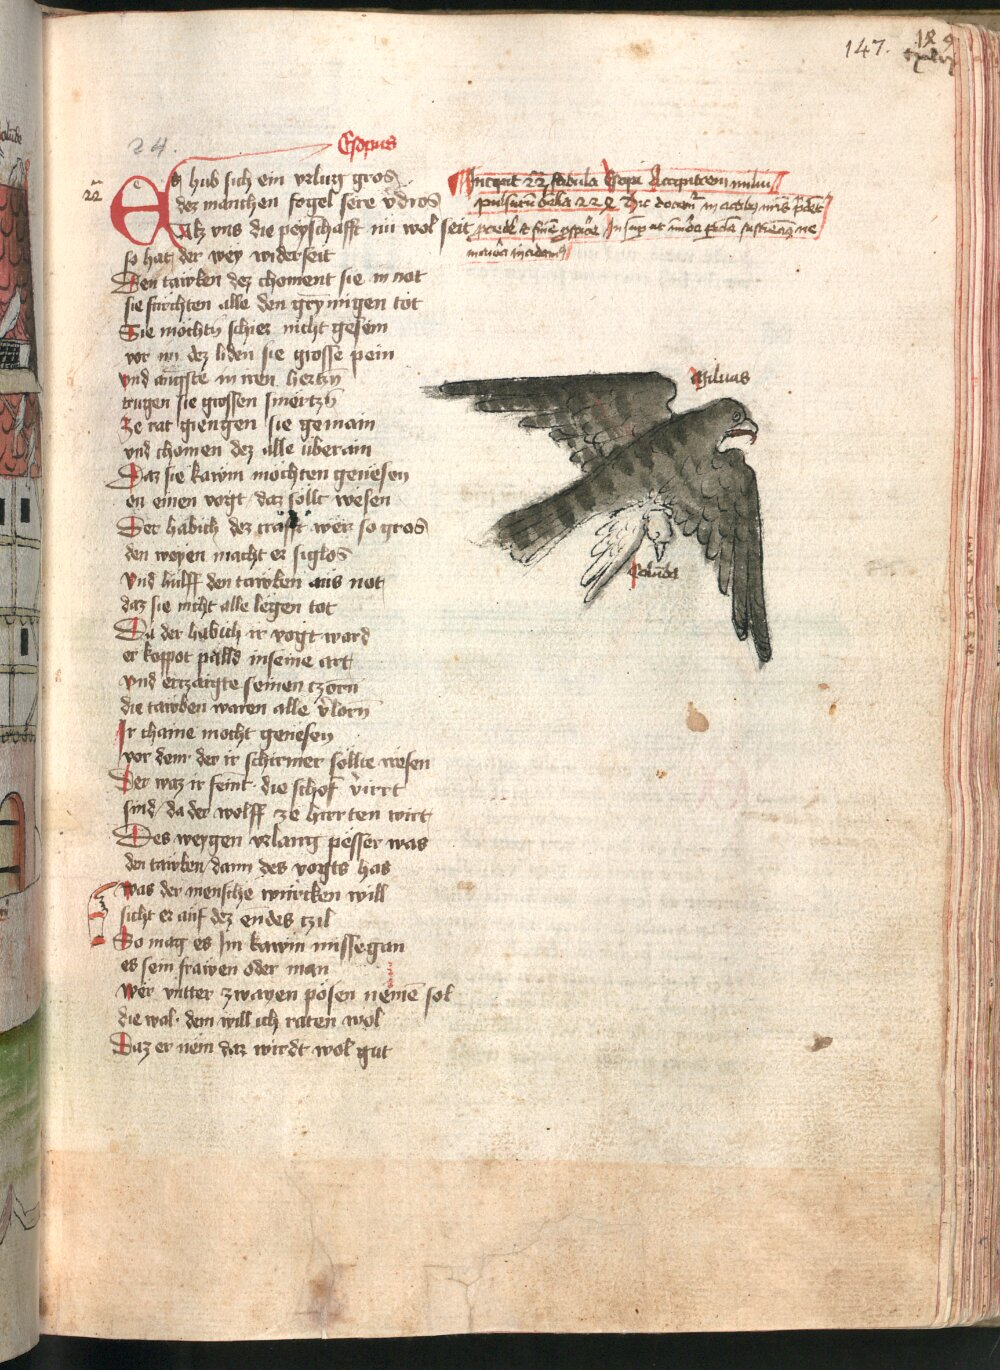 147.
24.
Esopus
22
Es hub sich ein vrlug gros
dez manchen fogel sere v̄dros
Alz vns die peyschafft nu wol seit
so hat der wey widerseit
Den tawben dez choment sie in not
sie furchten alle den grymigen tot
Sie mochtn̄ schier nicht gesein
vor im dez liden sie grosse pein
vnd angste in iren hertzn̄
trugen sie grossen smertzn̄
Ze rat giengen sie gemain
vnd chomen dez alle uberain
Daz sie kawm mochten genesen
on einen vogt daz sollt wesen
Der habich dez crafft wer so gros
den weyen macht er siglos
vnd hulff den tawben aus not
daz sie nicht alle legen tot
Da der habich ir vogt ward
er koppot palld in seine art
vnd ertzaigte seinen tzorn
die tawben waren alle v̄lorn
Ir chaine mocht genesen
vor dem der ir schirmer sollte wesen
Der waz ir feint die schof virrt
sind da der wolff ze hirten wirt
Des weygen vrlaug pesser was
den tawben dann des vogts has
was der mensche wurcken will
sicht er auf dez endes tzil
So mag es Im kawm missegan
es sein frawen oder man
wer vntter zwayen posen nemē sol
die wal dem will ich raten wol
Daz er nem daz wirdt wol gut
Incipit 22 fabula Esopi Accipitrem milui
pulsurū bella
Miluus
Columba